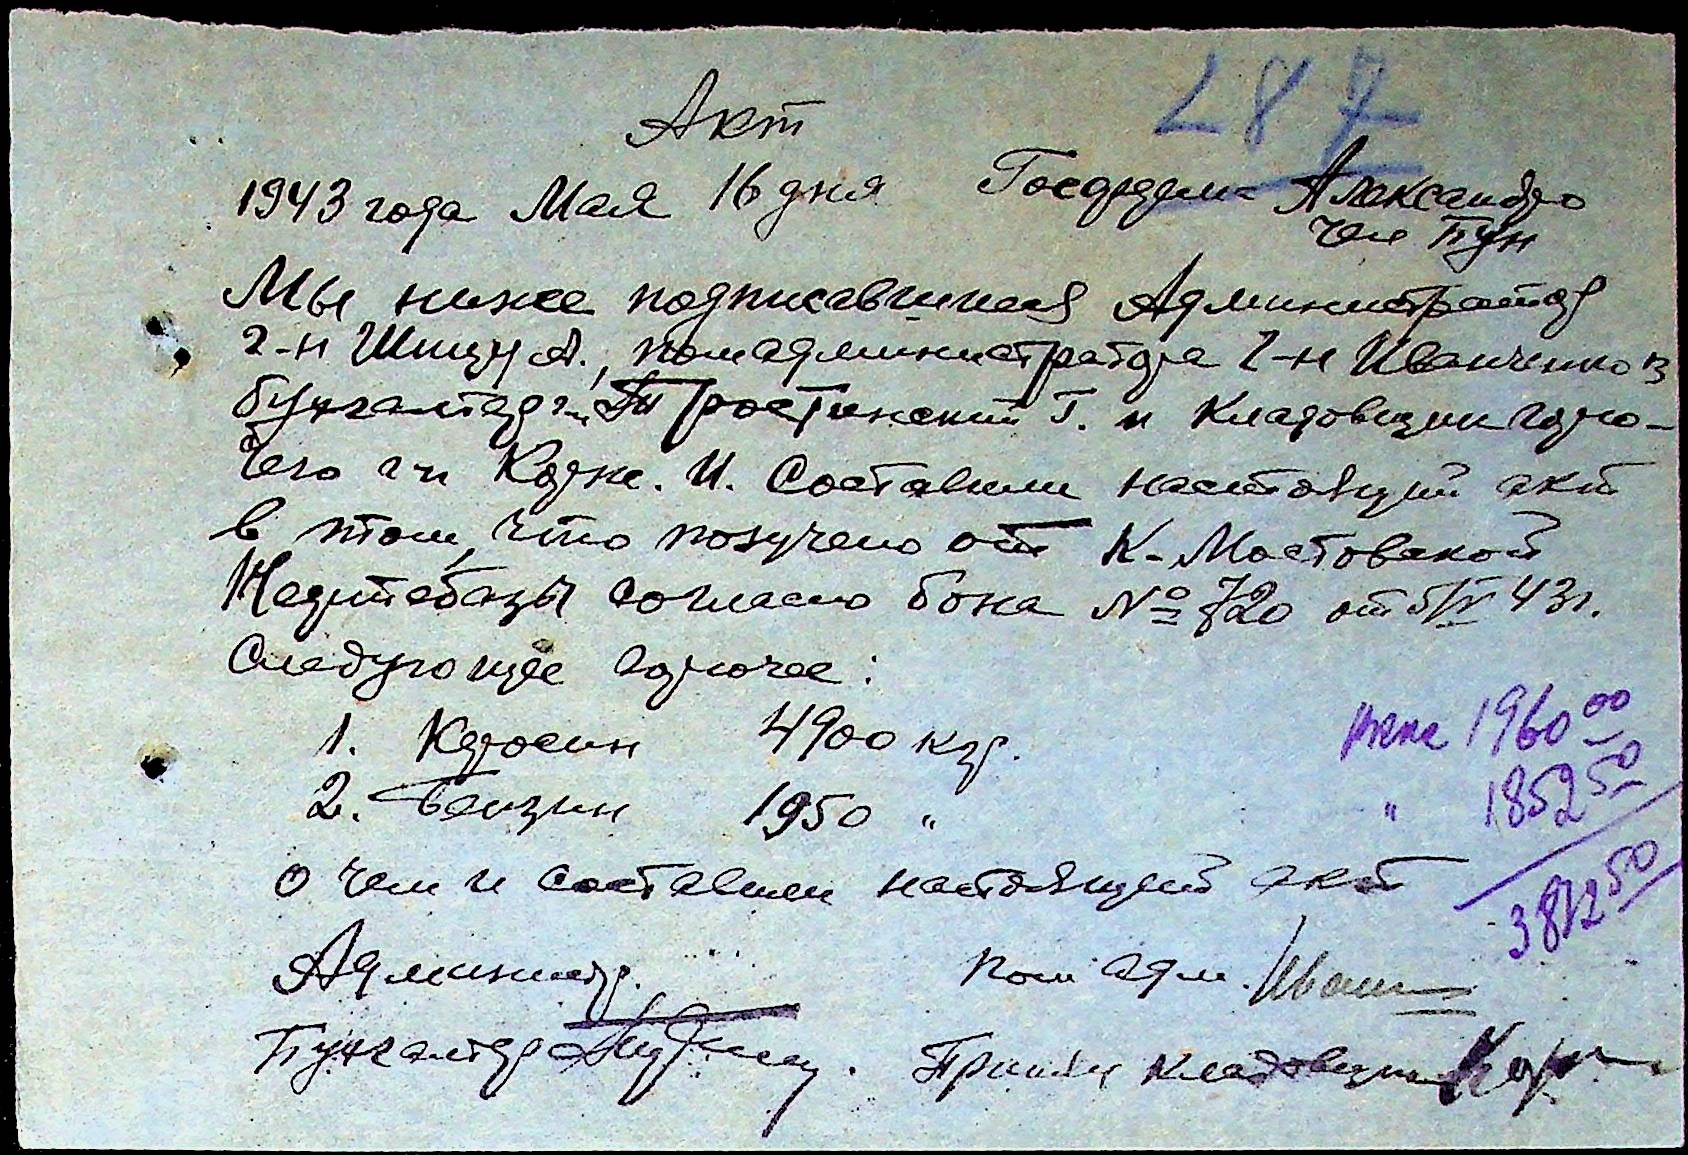 287
Акт
1943 года Мая 16 дня Госферма Александро
Мы ниже подписавшиеся Администратор
г-н Шицу А., помадминистратора г-н Иванченко В
бухгалтер г-н Тростинский Г. и Кладовщик горю-
чего г-н Корж. И. Составили настоящий акт
в том, что получено от К-Мостовской
Нефтебазы согласно бона № 720 от 5/V 43г.
Следующее горючее:
1. Керосин 4900 кгр. 1960 00
2. Бензин 1950 " " 1852 50
3812 50
о чем и составили настоящий акт
Администр. Пом адм. Иван
Бухгалтер Принял кладовщик Корж